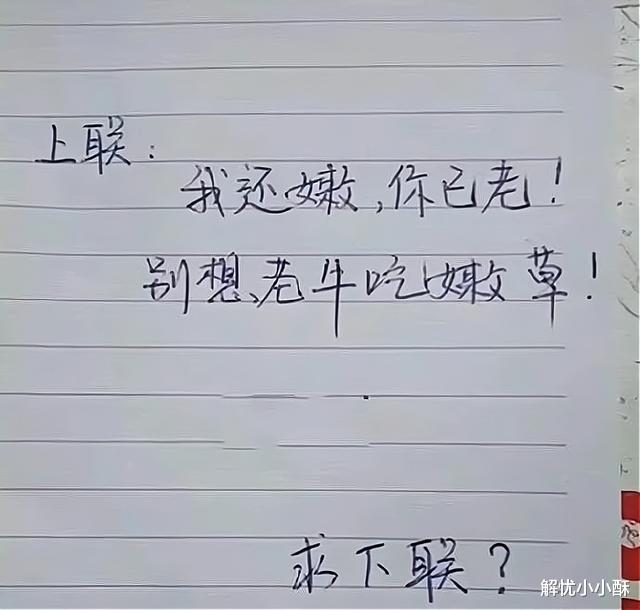 上联:
我还嫩,你已老!
别想老牛吃嫩草!
求下联?
解忧小小酥